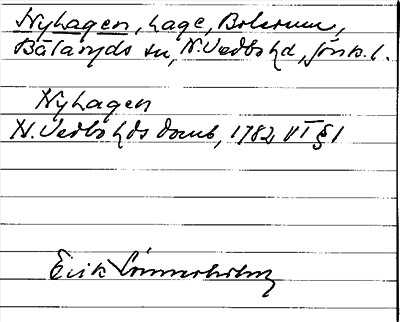 Nyhagen, hage, Bolerum,
Bälaryds sn, N. Vedbo hd, Jönk. l.
Nyhagen
N. Vedbo hds domb, 1782 VI § 1
Erik